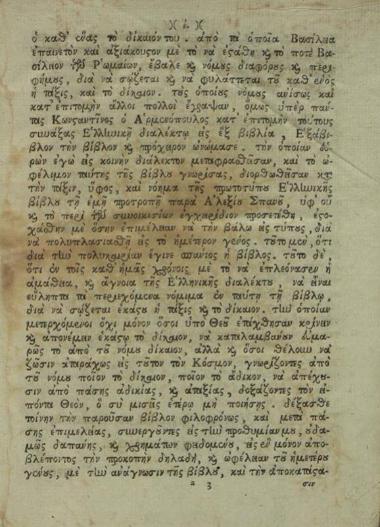 )( ζ. )(
ὁ καθ' ἕνας τὸ δίκαιόν του. ἀπὸ τὰ ὁποῖα Βασίλεια
ἐπαινετὸν καὶ ἀξιάκουστον μὲ τὸ νὰ ἐστάθη καὶ τὸ ποτὲ Βα-
σίλειον τῶν Ῥωμαίων, ἔβαλε καὶ νόμους διαφόρους καὶ περι-
φήμους, διὰ νὰ σώζεται καὶ νὰ φυλάττεται τοῦ καθ' ἑνὸς
ἡ τάξις, καὶ τὸ δίκαιον. τοὺς ὁποίους νόμους ἀνίσως καὶ
κατ' ἐπιτομὴν ἄλλοι πολλοὶ ἔγραψαν, ὅμως ὑπὲρ πάν-
τας Κωνσταντῖνος ὁ Ἁρμενόπουλος κατ' ἐπιτομὴν τούτους
συνάξας Ἑλληνικῇ διαλέκτῳ εἰς ἓξ βιβλία, Ἑξάβι-
βλον τὴν Βίβλον καὶ πρόχειρον ὠνόμασε. τὴν ὁποίαν
ἐγὼ εἰς κοινὴν διάλεκτον μεταφρασθεῖσαν, καὶ τὸ ὠ-
φέλιμον ταύτης τῆς βίβλου γνωρίσας, διορθωθεῖσαν κατὰ
τὴν τάξιν, ὕφος, καὶ νόημα τῆς πρωτοτύπου Ἑλληνικῆς
βίβλου τῇ ἐμῇ προτροπῇ παρὰ Ἀλεξίου Σπανοῦ, ὑφ' οὗ
καὶ τὸ περὶ τῶν συνοικεσίων ἐγχειρίδιον προσετέθη, ἐστο-
χάσθην μὲ ὅσην ἐπιμέλειαν νὰ τὴν βάλω εἰς τύπον, διὰ
νὰ πολυπλασιασθῇ εἰς τὸ ἡμέτερον γένος. τοῦτο μέν, ὅτι
διὰ τὴν πολυκαιρίαν ἔγινε σπάνιος ἡ βίβλος. τοῦτο δέ,
ὅτι ἐν τοῖς καθ' ἡμᾶς χρόνοις μὲ τὸ νὰ ἐπλεόνασεν ἡ
ἀμάθεια, καὶ ἄγνοια τῆς Ἑλληνικῆς διαλέκτου, νὰ εἶναι
εὔληπτα τὰ περιεχόμενα νόμιμα ἐν ταύτῃ τῇ βίβλῳ,
διὰ νὰ σώζεται ἑκάστου ἡ τάξις καὶ τὸ δίκαιον. τὴν ὁποίαν
μετερχόμενοι ὄχι μόνον ὅσοι ὑπὸ Θεοῦ ἐτάχθησαν κρίνειν
καὶ ἀπονέμειν ἑκάστῳ τὸ δίκαιον, νὰ καταλαμβάνουν εὐμα-
ρῶς τὸ ἀπὸ τοῦ νόμου δίκαιον, ἀλλὰ καὶ ὅσοι θέλουν νὰ
ζῶσιν ἀταράχως εἰς τοῦτον τὸν Κόσμον, γνωρίζοντες ἀπὸ
τοῦ νόμου ποῖον τὸ δίκαιον, ποῖον τὸ ἄδικον, νὰ ἀπέχω-
σιν ἀπὸ πάσης ἀδικίας, καὶ ἀταξίας, δοξάζοντες τὸν ἐ-
πόντα Θεόν, ὃ σὺ μισεῖς ἑτέρῳ μὴ ποιήσῃς. δέξασθε
τοίνυν τὴν παροῦσαν βίβλον φιλοφρόνως, καὶ μετὰ πά-
σης ἐπιμελείας, συνεργοῦντες εἰς τὴν προθυμίαν μου, οὐδα-
μῶς δαπάνης, καὶ χρημάτων φειδομένου, εἰς ἓν μόνον ἀπο-
βλέποντος τὴν προκοπὴν δηλαδή, καὶ ὠφέλειαν τοῦ ἡμετέρου
γένους, μὲ τὴν ἀνάγνωσιν τῆς βίβλου, καὶ τὴν ἀποκατάστα-
a 3 σιν